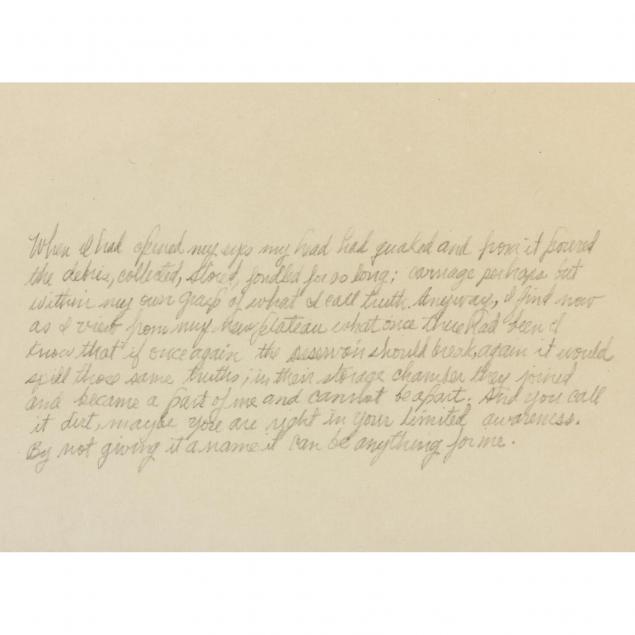 When I had opened my eyes my head had quaked and from it poured
the debris, collected, stored, fondled for so long; carnage perhaps but
within my own grasp of what I call truth. Anyway, I find now
as I view from my new plateau what once there had been I
know that if once again the reservoir should break, again it would
spill those same truths; in their storage chamber they joined
and became a part of me and cannot be apart. And you call
it dirt, maybe you are right in your limited awareness.
By not giving it a name it can be anything for me.